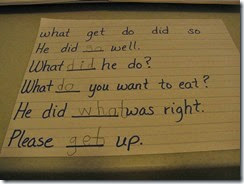 what get do did so
He did so well.
What did he do?
What do you want to eat?
He did what was right.
Please get up.